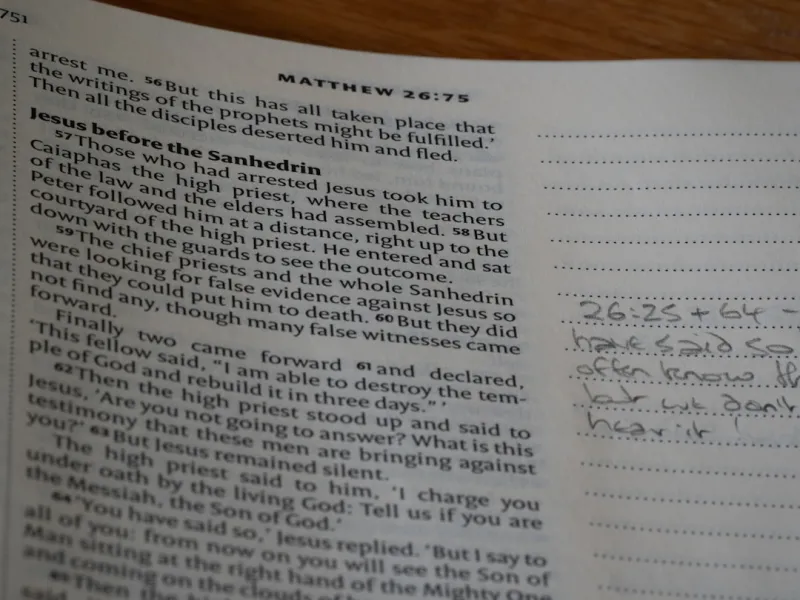 751
MATTHEW 26:75
arrest me. 56But this has all taken place that
the writings of the prophets might be fulfilled.’
Then all the disciples deserted him and fled.
Jesus before the Sanhedrin
57Those who had arrested Jesus took him to
Caiaphas the high priest, where the teachers
of the law and the elders had assembled. 58But
Peter followed him at a distance, right up to the
courtyard of the high priest. He entered and sat
down with the guards to see the outcome.
59The chief priests and the whole Sanhedrin
were looking for false evidence against Jesus so
that they could put him to death. 60But they did
not find any, though many false witnesses came
forward.
Finally two came forward 61and declared,
‘This fellow said, “I am able to destroy the tem-
ple of God and rebuild it in three days.” ’
62Then the high priest stood up and said to
Jesus, ‘Are you not going to answer? What is this
testimony that these men are bringing against
you?’ 63But Jesus remained silent.
The high priest said to him, ‘I charge you
under oath by the living God: Tell us if you are
the Messiah, the Son of God.’
64‘You have said so,’ Jesus replied. ‘But I say to
all of you: from now on you will see the Son of
Man sitting at the right hand of the Mighty One
and coming on the clouds of
65Then the
26:25 + 64 –
have said so
often know th
but we don't
hear it!